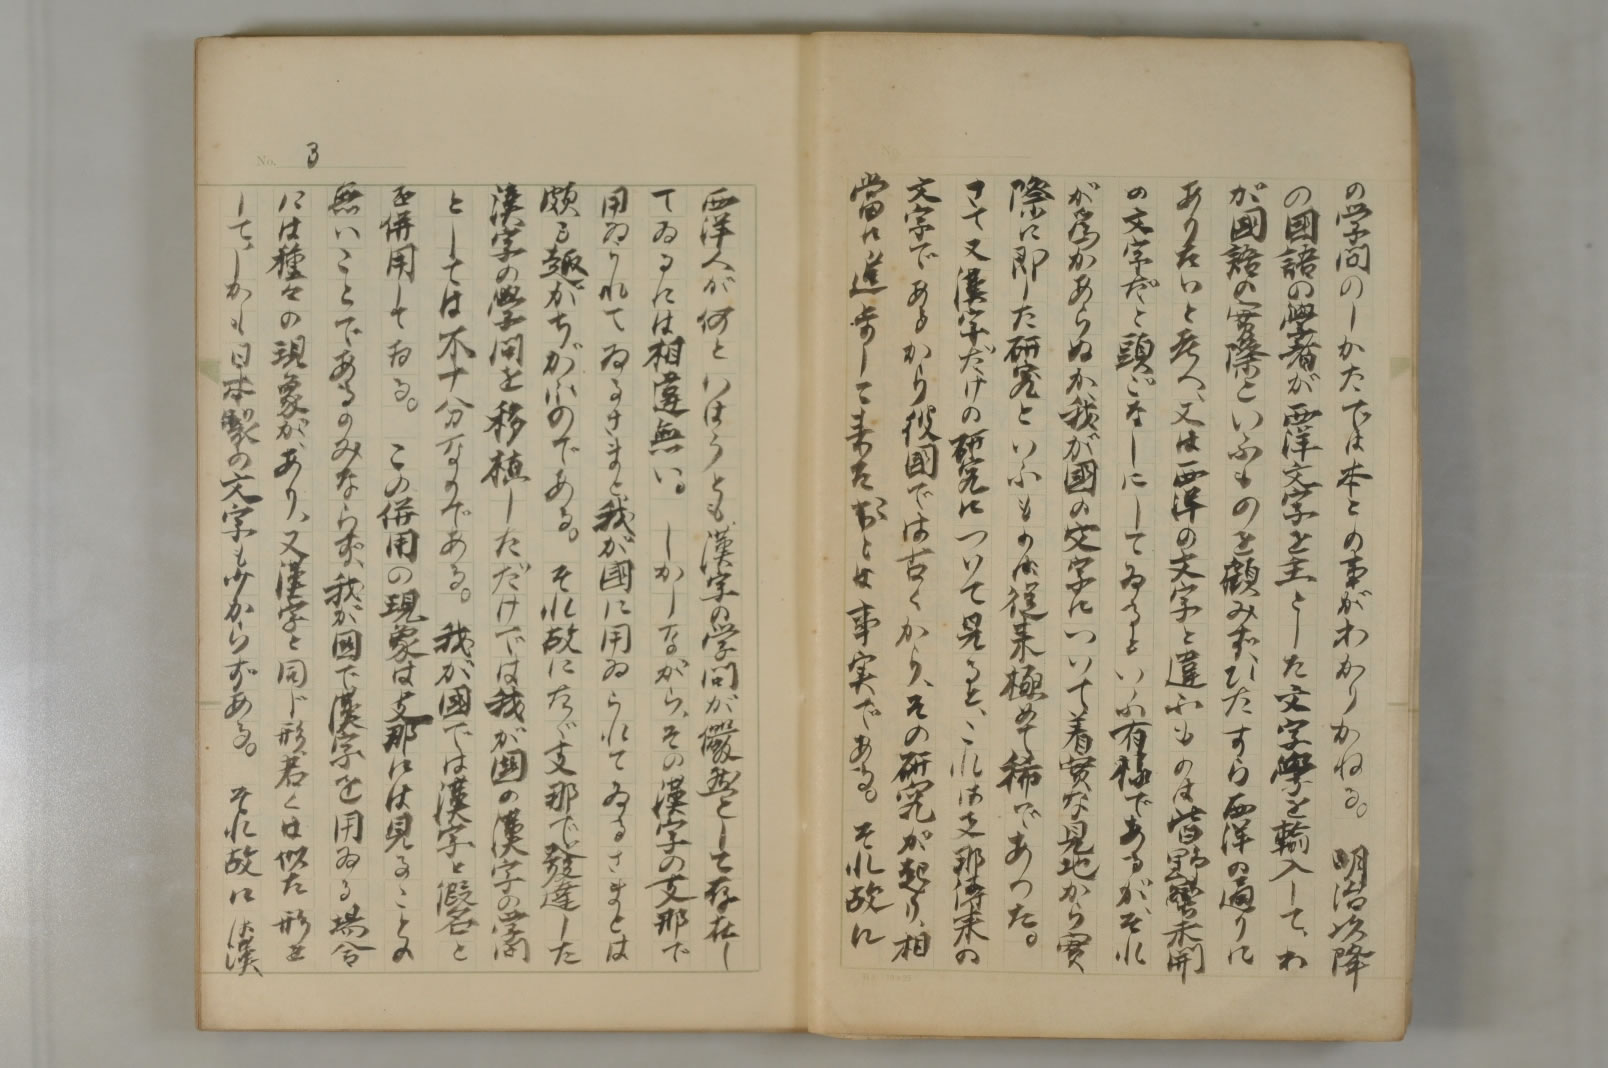 の学問のしかたでは本との事がわかりかねる。 明治以降
の國語の學者が西洋文字を主とした文字學を輸入して、わ
が國語の實際といふものを顧みず、ひたすら西洋の通りに
ありたいと考へ、又は西洋の文字と違ふものは皆野蠻未開
の文字だと頭ごなしにしてゐるといふ有様であるが、それ
が為かあらぬか、我が國の文字について着實な見地から實
際に即した研究といふものは従来極めて稀であつた。
さて又漢字だけの研究について見ると、これは支那傳来の
文字であるから彼國では古くから、その研究が起り、相
當に進歩して来たことは事実である。 それ故に
No. 3
西洋人が何といはうとも漢字の学問が儼然として存在し
てゐるには相違無い。 しかしながら、その漢字の支那で
用ゐられてゐるさまと我が國に用ゐられてゐるさまとは
頗る趣がちがふのである。 それ故にたゞ支那で發達した
漢字の學問を移植しただけでは我が國の漢字の学問
としては不十分なのである。 我が國では漢字と假名と
を併用してゐる。 この併用の現象は支那には見ることの
無いことであるのみならず、我が國で漢字を用ゐる場合
には種々の現象があり、又漢字と同じ形若くは似た形を
して、しかも日本製の文字も少からずある。 それ故に漢